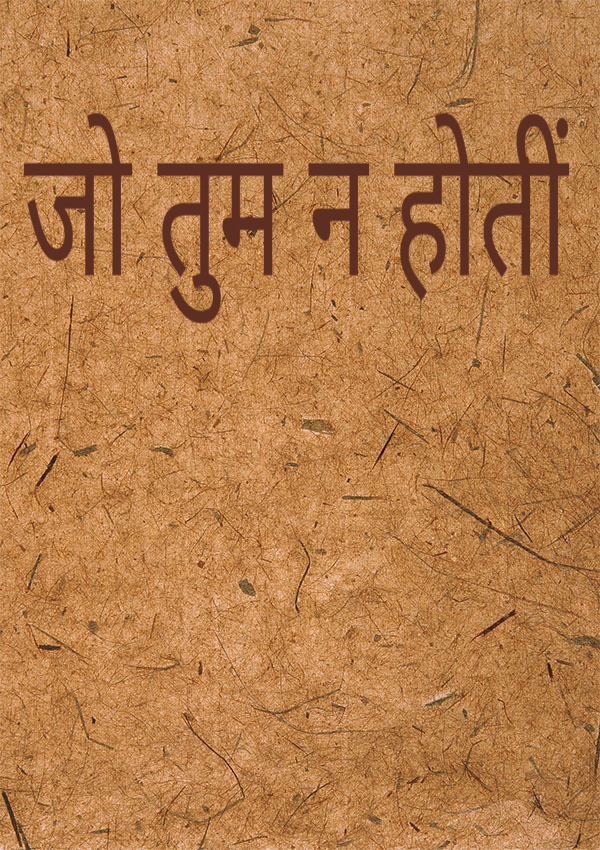 जो तुम न होतीं